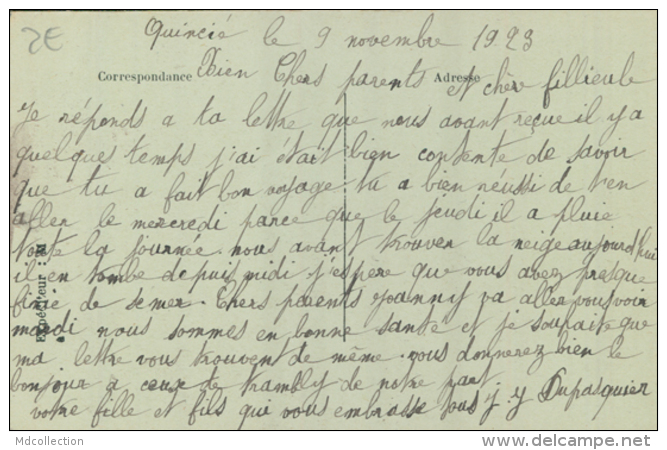 2E
Quincié le 9 novembre 1923
Correspondance Bien Chers parents Adresse et chère fillieule
Je réponds a ta lettre que nous avont reçue il y a
quelques temps j'ai était bien contente de savoir
que tu a fait bon voyage. tu a bien réussi de t'en
aller le mercredi parce que le jeudi il a pluie
toute la journée. nous avont trouver la neige aujourd'hui
il en tombe depuis midi j'espère que vous avez presque
finie de semer. Chers parents Joanny va aller vous voir
mardi nous sommes en bonne santé et je souhaite que
ma lettre vous trouvent de même. vous donnerez bien le
bonjour à ceux de trambly de notre part
votre fille et fils qui vous embrasse tous J. Y Dupasquier
Expéditeur : M
Mdcollection
www.delcampe.net